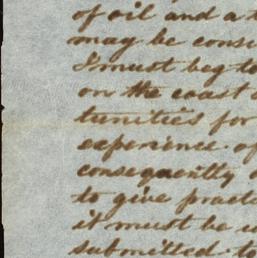 of oil and a
may be consi
I must beg to
on the coast
tunities for
experience of
consequently
to give practi
it must be u
submitted to